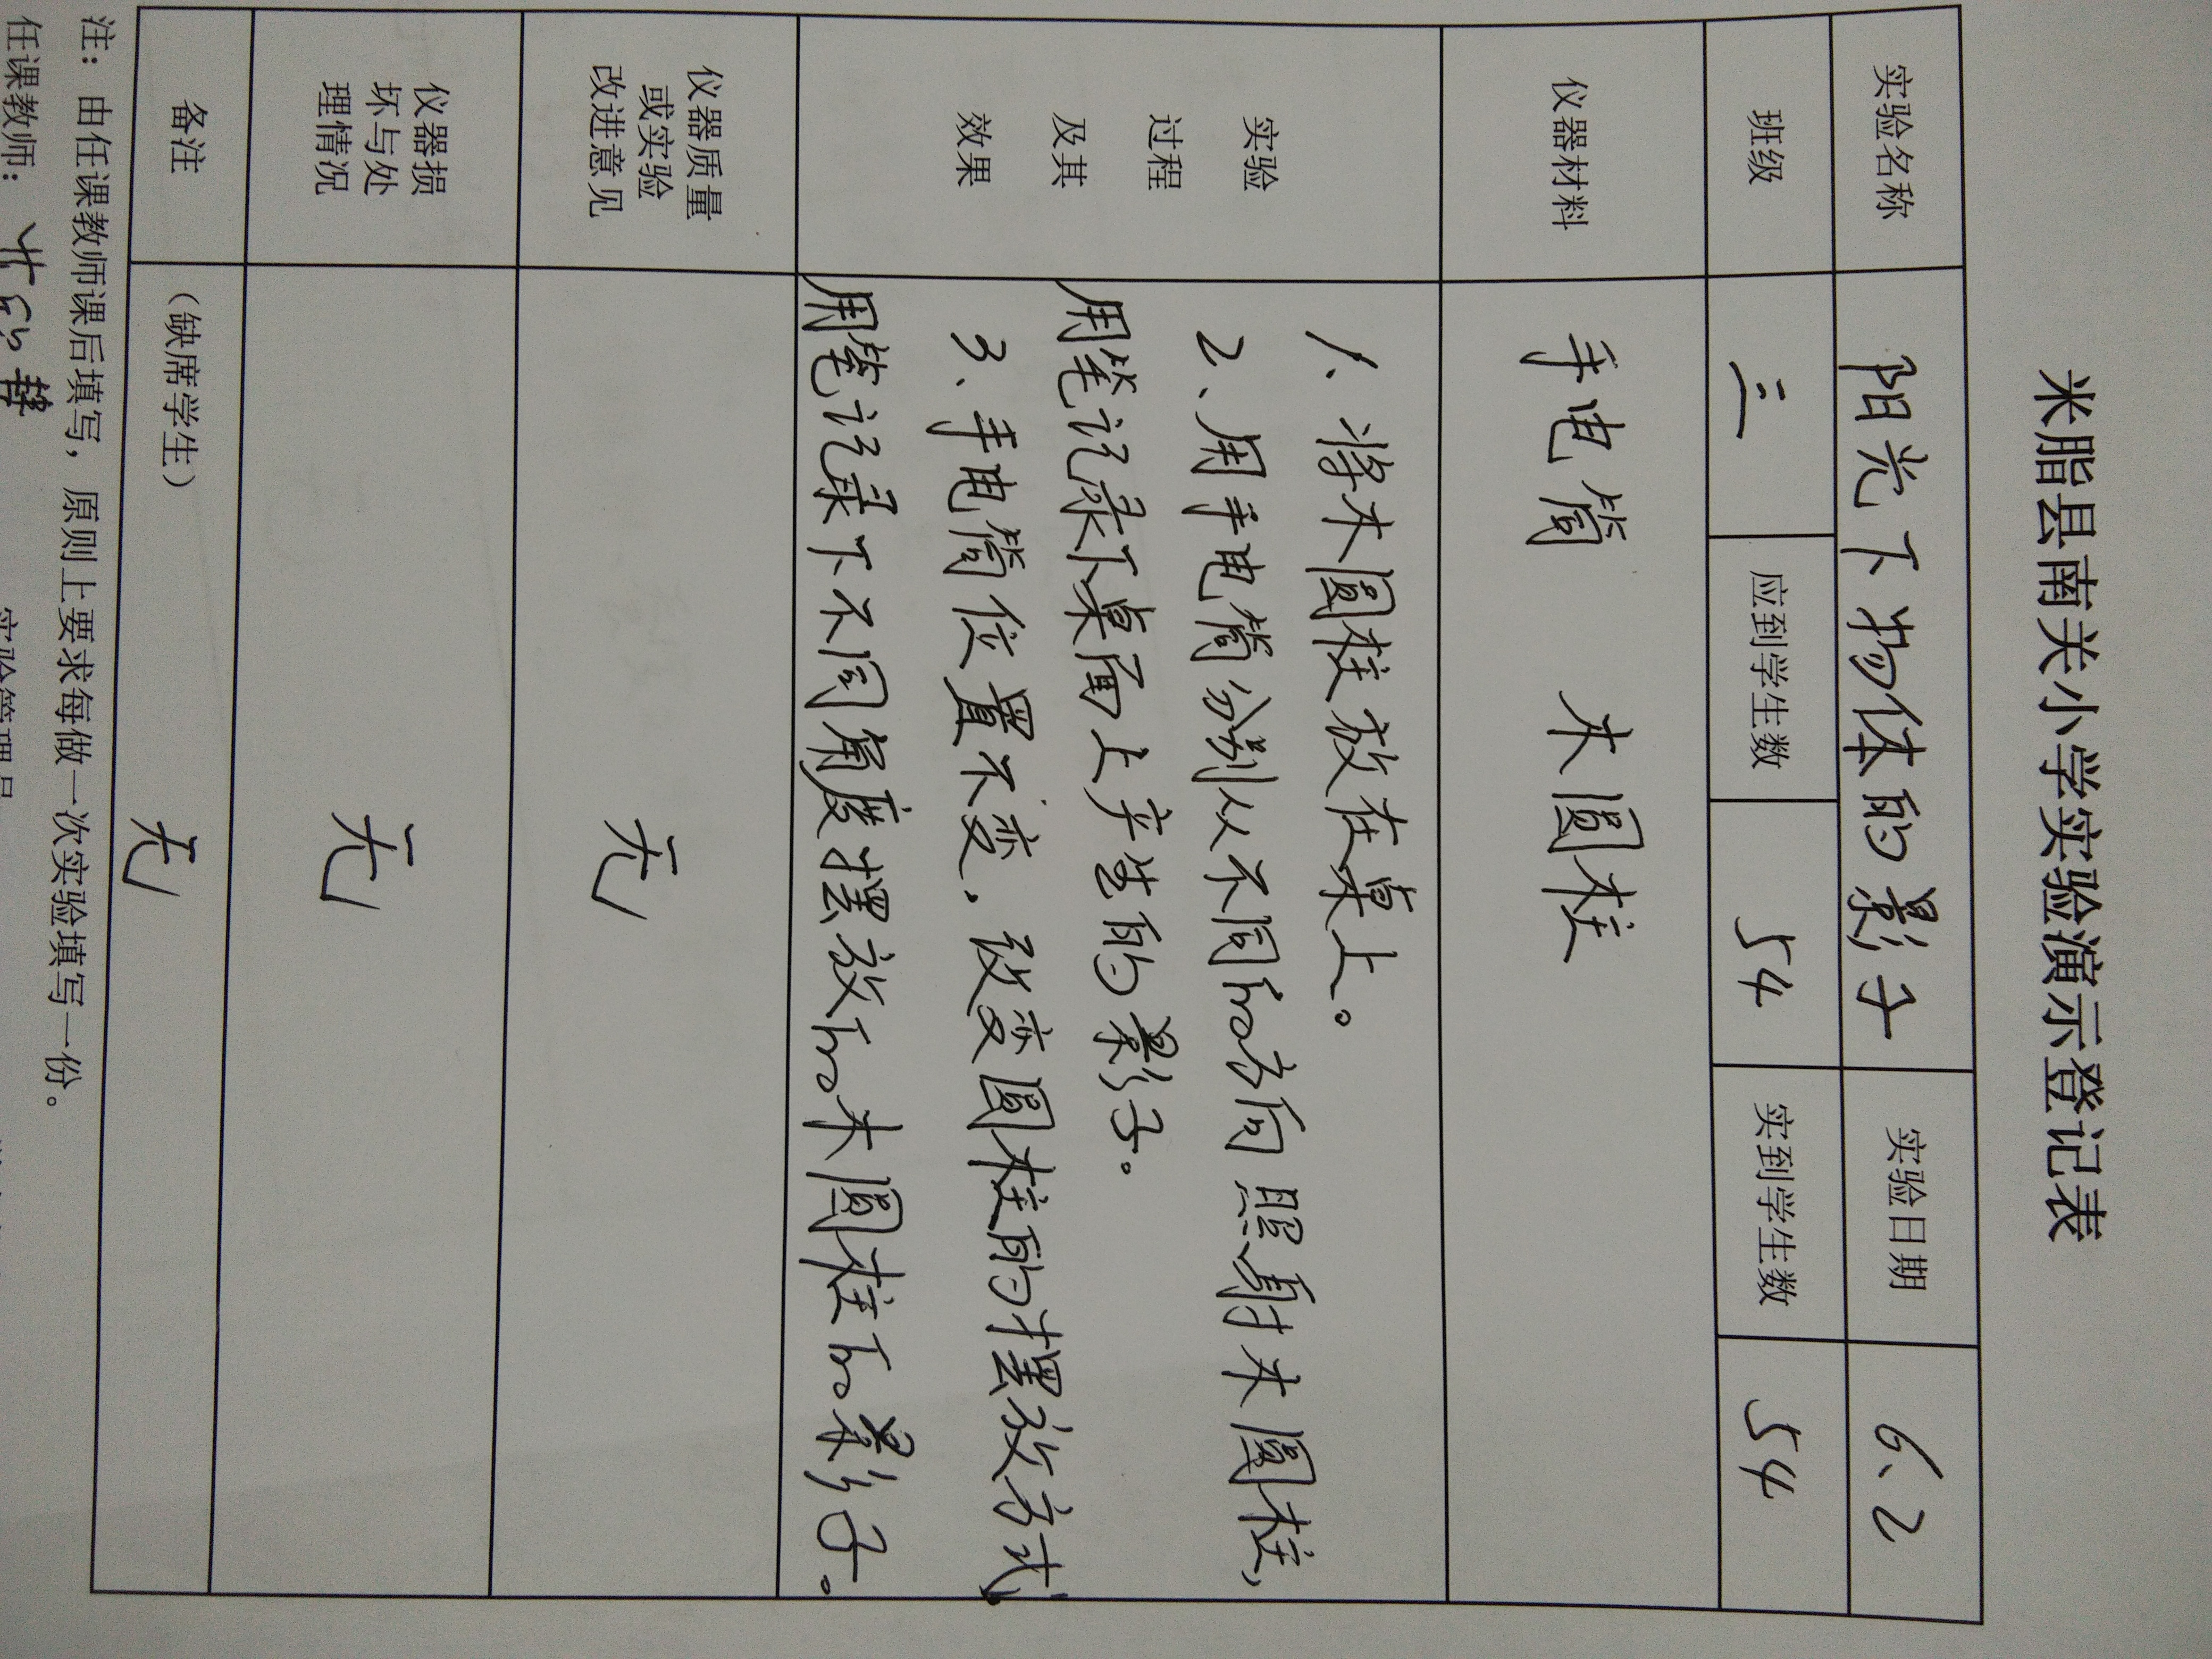 米脂县南关小学实验演示登记表
实验名称 阳光下物体的影子 实验日期 6.2
班级 三 应到学生数 54 实到学生数 54
仪器材料 手电筒 木圆柱
实验
过程
及其
效果
1、将木圆柱放在桌上。
2、用手电筒分别从不同的方向照射木圆柱,
用笔记录下桌面上产生的影子。
3、手电筒位置不变,改变圆柱的摆放方式,
用笔记录下不同角度摆放的木圆柱的影子。
仪器质量
或实验
改进意见
无
仪器损
坏与处
理情况
无
备注 (缺席学生) 无
注:由任课教师课后填写,原则上要求每做一次实验填写一份。
任课教师: 实验管理员